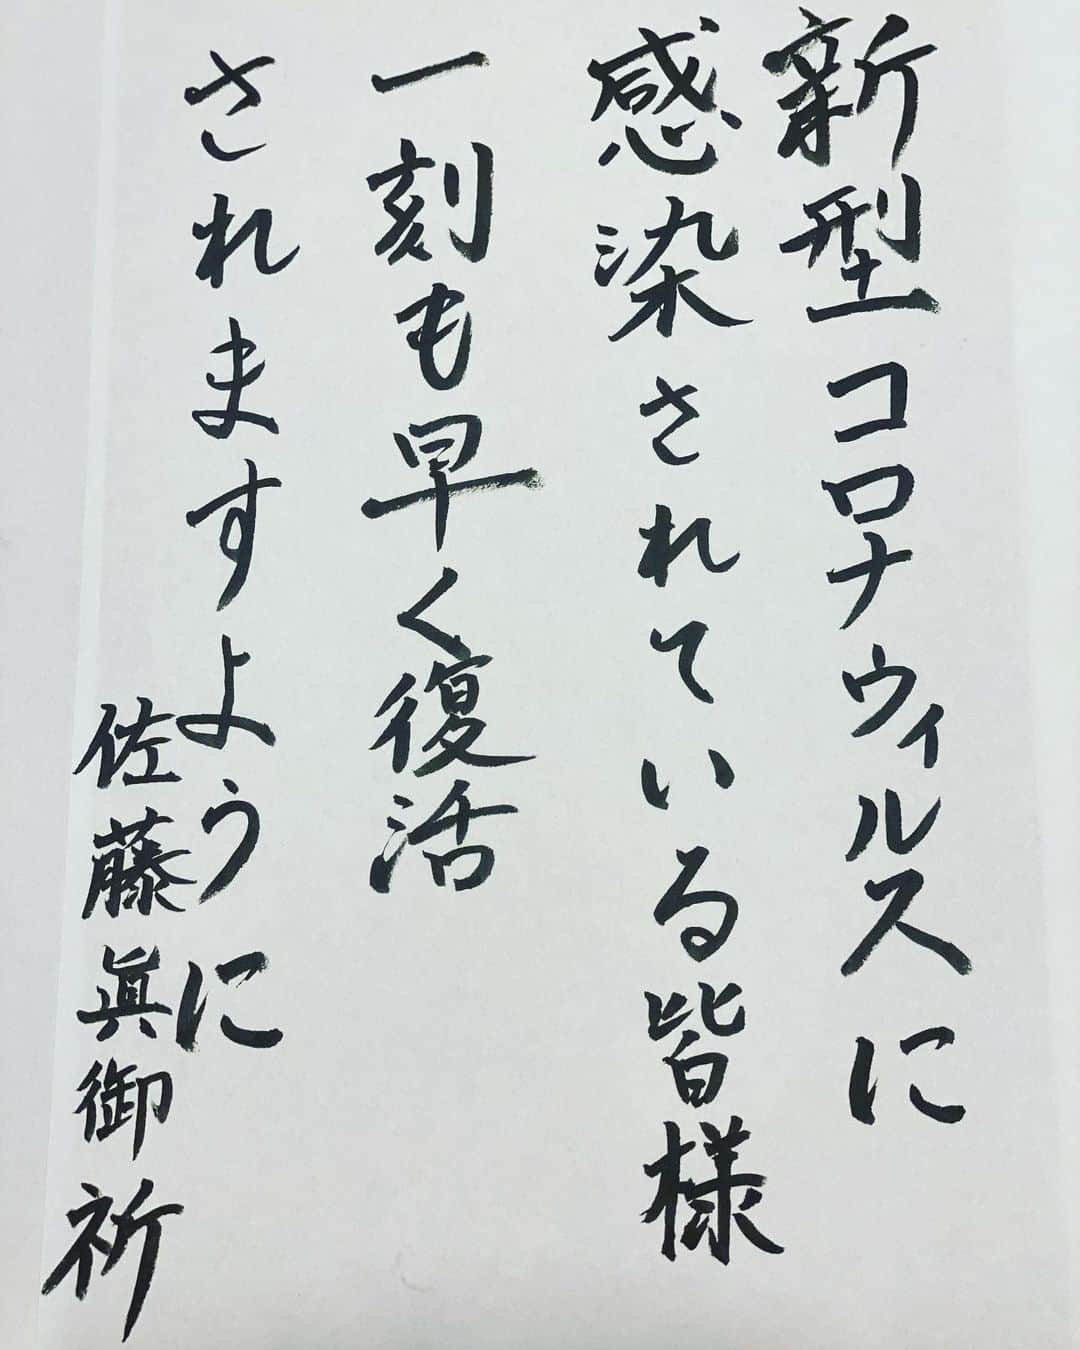 新型コロナウィルスに
感染されている皆様
一刻も早く復活
されますように
佐藤眞御祈